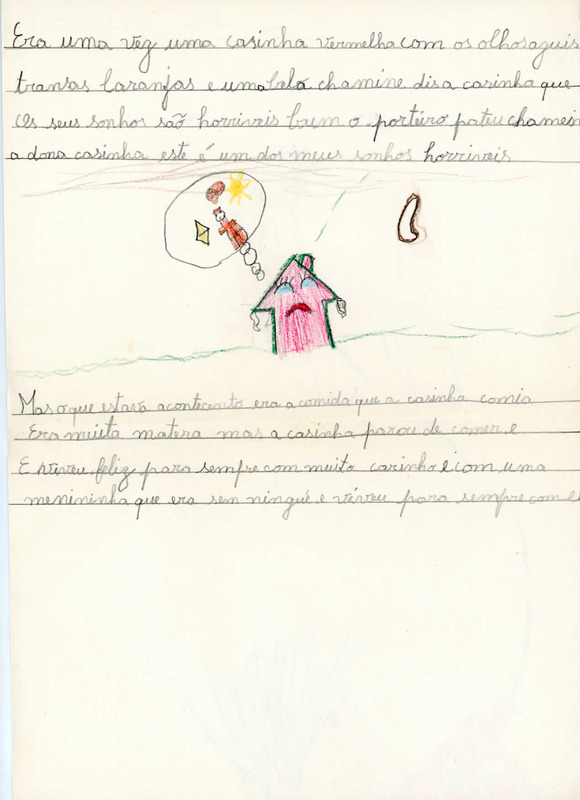 Era uma vez uma casinha vermelha com os olhos azuis
transas laranjas e uma bela chamine disa casinha que
Os seus sonhos são horriveis bum o porteiro pateu chamein
a dona casinha este é um dos meus sonhos horriveis
Mas o que estará acontecento era a comida que a casinha comia
Era muita matera mas a casinha parou de comer e
E viveu feliz para sempre com muito carinho e com uma
menininha que era sem ningué e véveu para sempre com